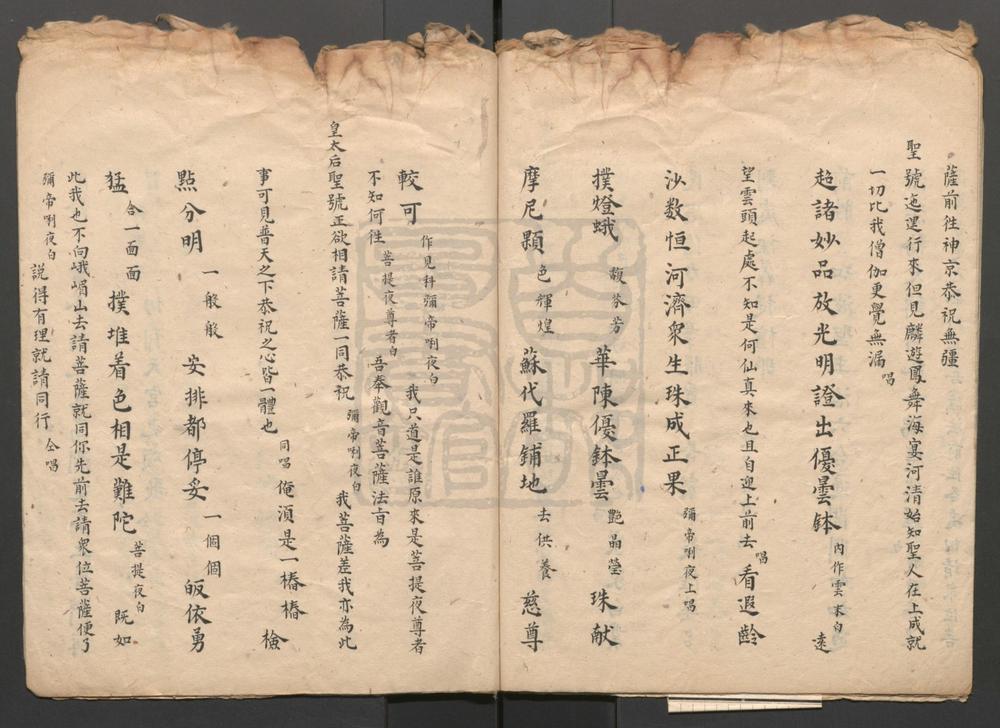 薩前徃神京恭祝無疆
聖號迤逞行來但見麟遊鳳舞海宴河清始知聖人在上咸就
一切比我僧伽更覺無漏 唱
超諸妙品放光明證出優曇鉢 內作雲末白 遠
望雲頭起處不知是何仙真來也且自迎上前去 唱 看遐齡
沙数恒河濟衆生珠成正果 彌帝唎夜上唱
撲燈蛾 馥芬芳 華陳優鉢曇 艷晶瑩 珠献
摩尼顆 色輝煌 蘇代羅鋪地 去供養 慈尊
較可 作見科彌帝唎夜白 我只道是誰原來是菩提夜尊者
不知何徃 菩提夜尊者白 吾奉觀音菩薩法旨為
皇太后聖號正欲相請菩薩一同恭祝 彌帝唎夜白 我菩薩差我亦為此
事可見普天之下恭祝之心皆一體也 同唱 俺湏是一樁樁 檢
點分明 一般般 安排都停妥 一個個 皈依勇
猛 合 一面面 撲堆着色相是難陀 菩提夜白 既如
此我也不向峨嵋山去請菩薩就同你先前去請衆位菩薩便了
彌帝唎夜白 説得有理就請同行 仝唱